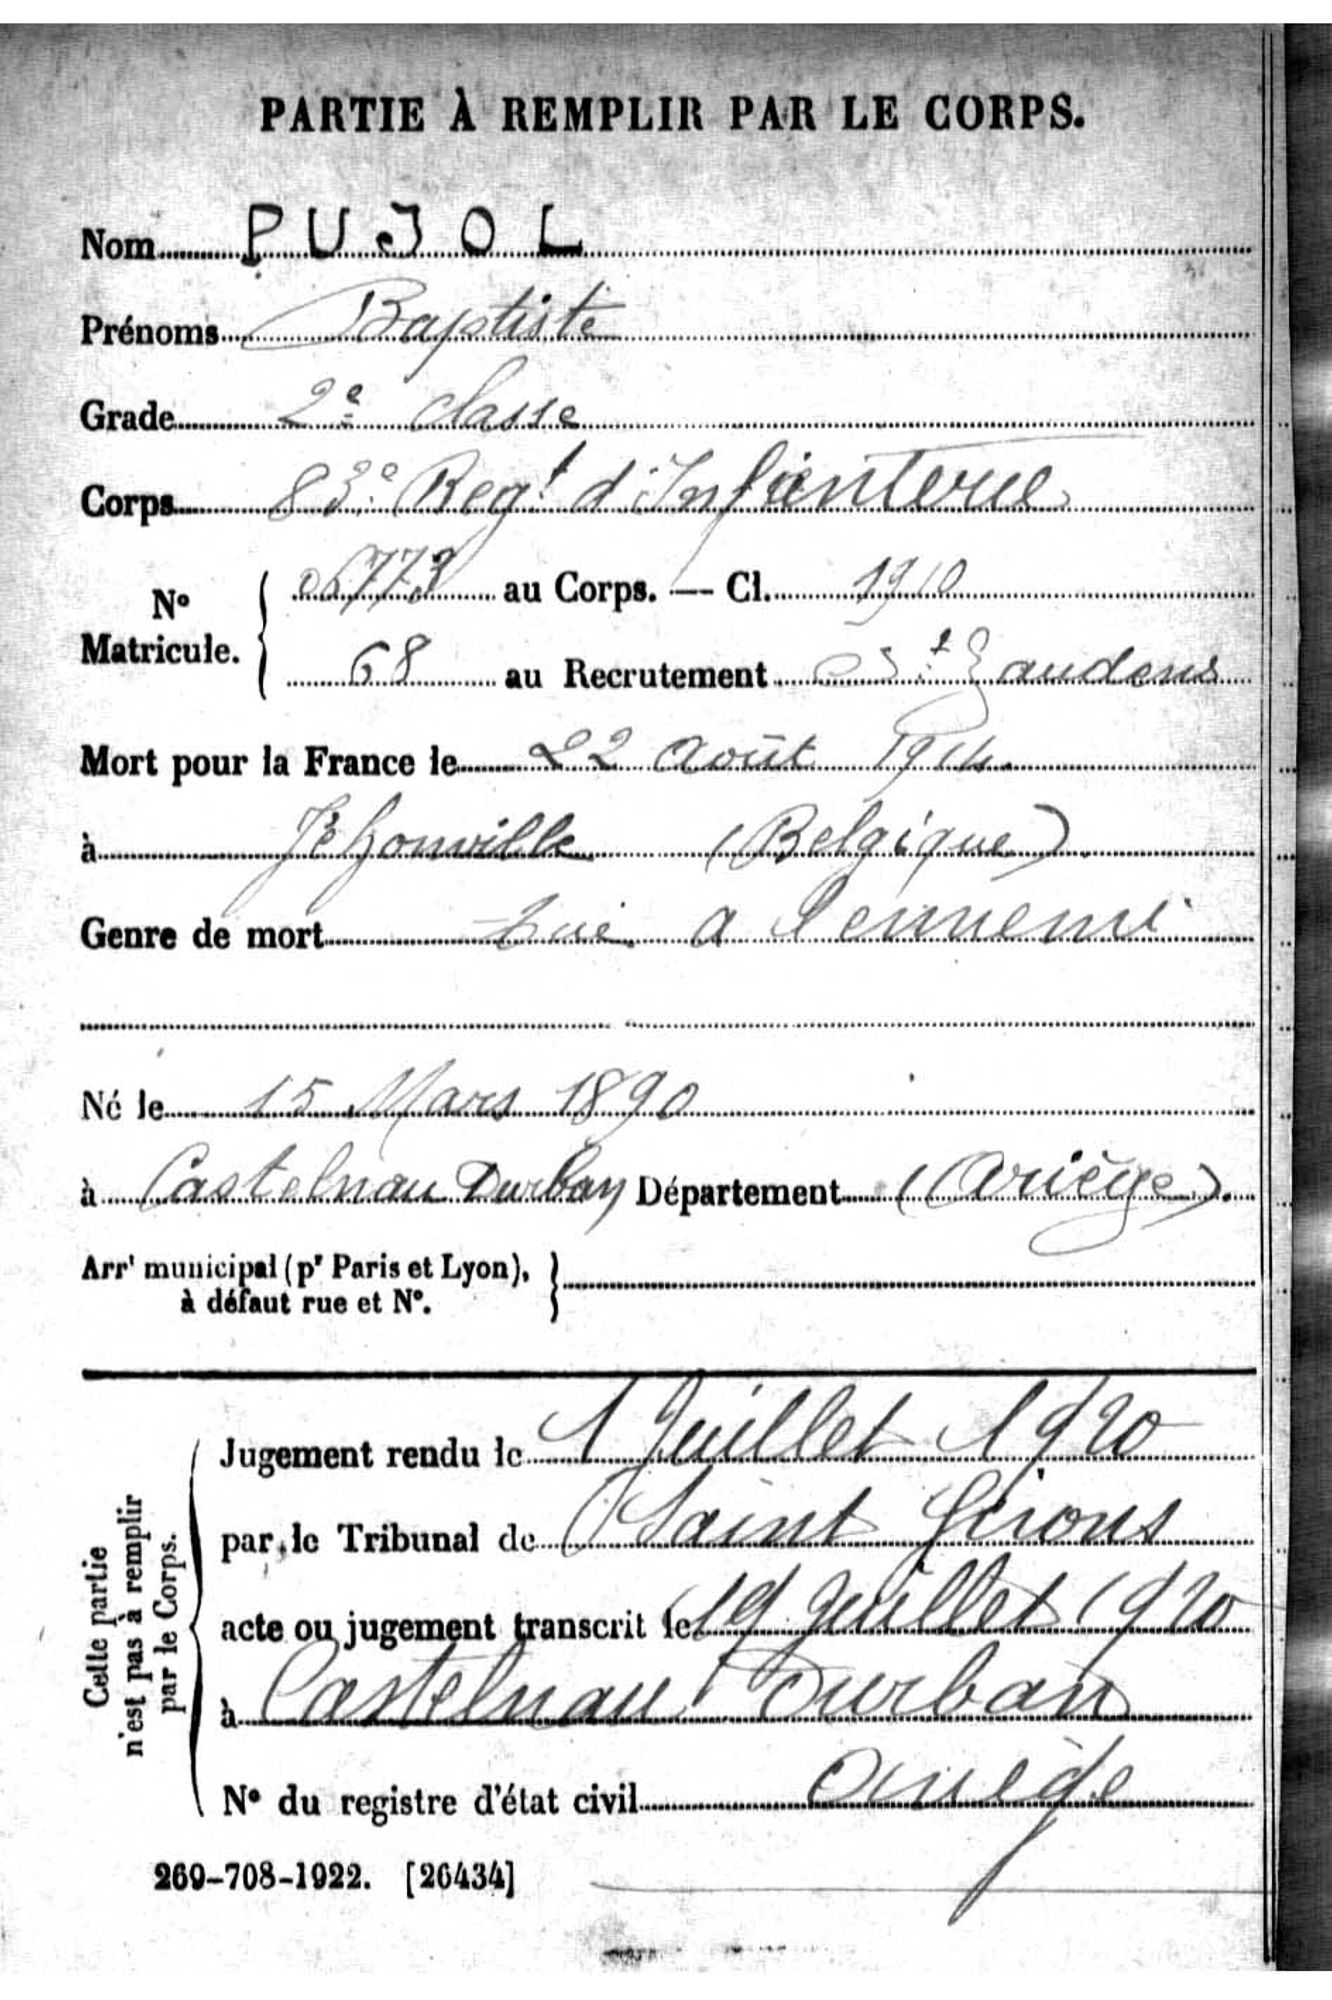 PARTIE À REMPLIR PAR LE CORPS.
Nom PUJOL
Prénoms Baptiste
Grade 2e classe
Corps 83e Regt d'Infanterie
No Matricule. 06773 au Corps. — Cl. 1910
68 au Recrutement St Gaudens
Mort pour la France le 22 Août 1914
à Jéhonville (Belgique)
Genre de mort tué a l'ennemi
Né le 15 Mars 1890
à Castelnau Durban Département (Ariège).
Arrt municipal (pr Paris et Lyon),
à défaut rue et No.
Cette partie
n'est pas à remplir
par le Corps.
Jugement rendu le 1 Juillet 1920
par le Tribunal de Saint Girons
acte ou jugement transcrit le 19 Juillet 1920
à Castelnau Durban
No du registre d'état civil Ariège
269-708-1922. [26434]